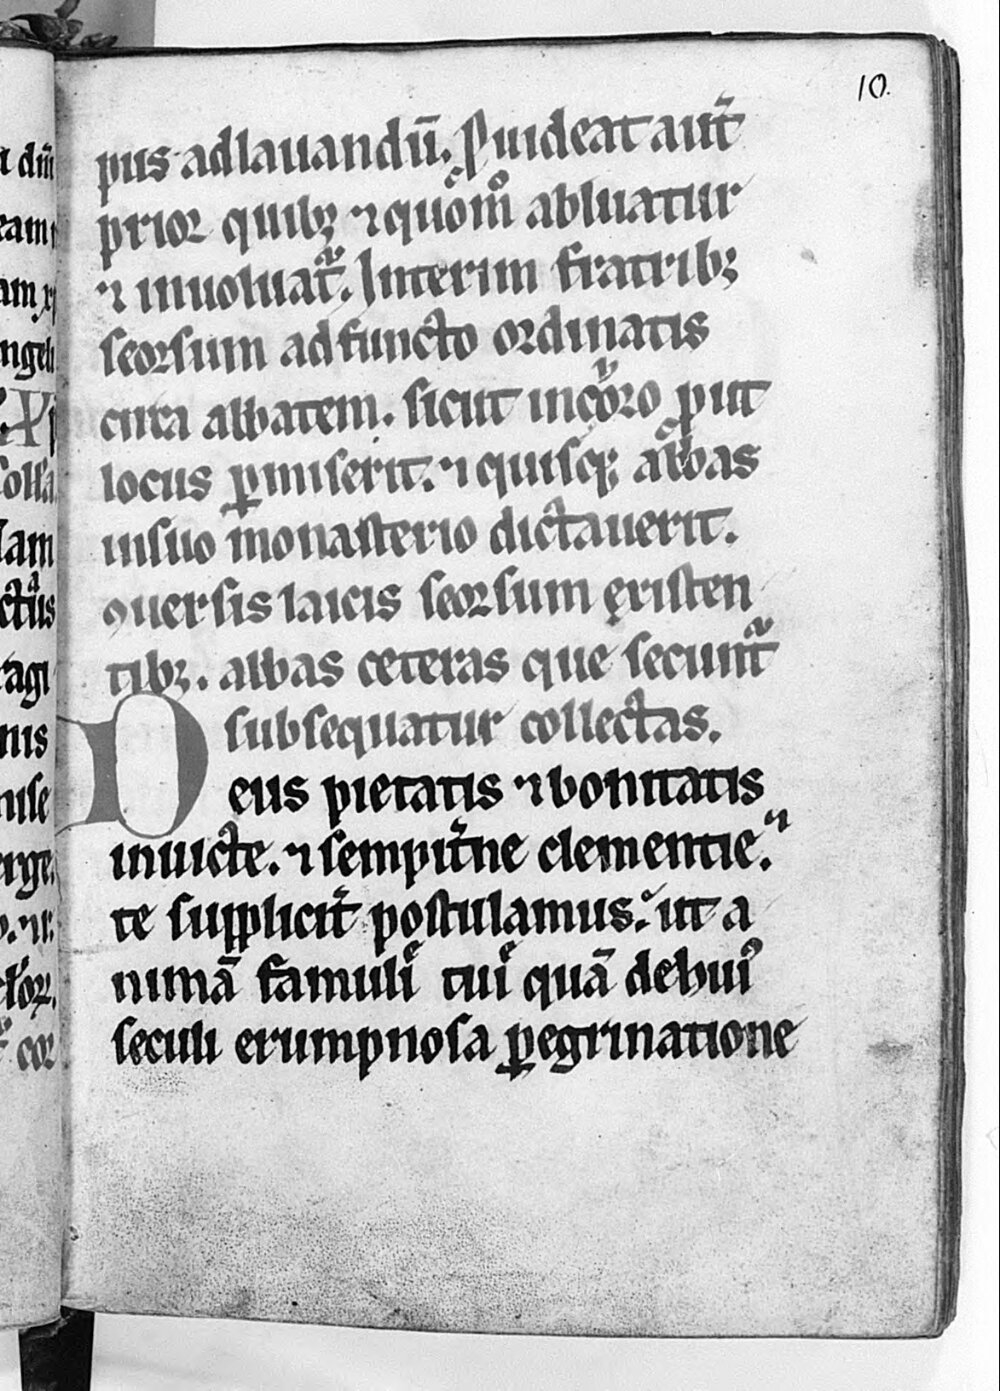 10.
pus ad lauandū. Puideat aut̄
prior quibꝫ ⁊ quōm̊ abluatur
⁊ inuoluat᷑. Interim fratribꝫ
seorsum ad functo ordinatis
circa abbatem. sicut in choro put
locus ꝑmiserit. ⁊ quisqꝫ abbas
in suo monasterio dictauerit.
ꝯuersis laicis seorsum existen
tibꝫ. abbas ceteras que secunt᷑
subsequatur collectas.
Deus pietatis ⁊ bonitatis
inuicte. ⁊ sempit̄ne clementie.
te supplicit̄ postulamus. ut a
nimā famuli tui quā de huiꝰ
seculi erumpnosa ꝑegrinatione